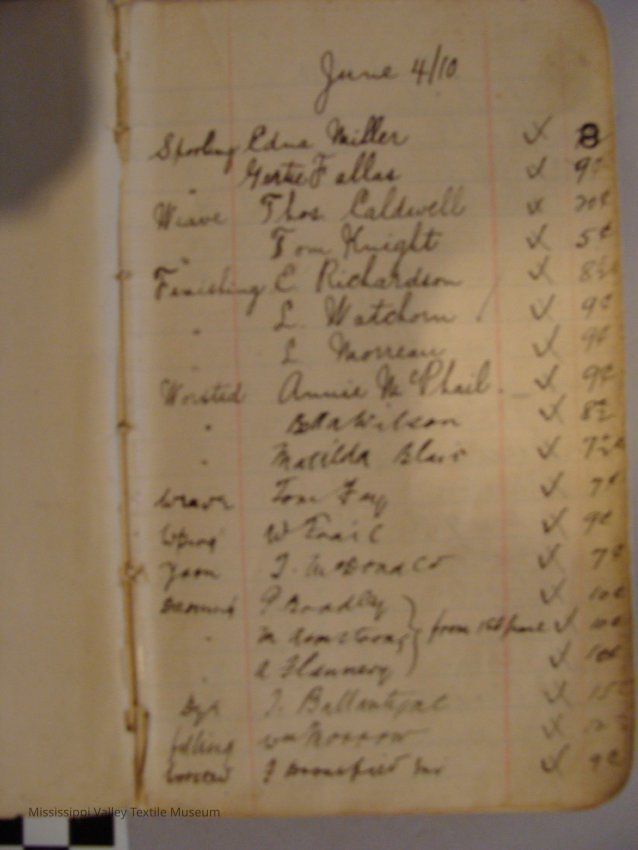 June 4/10
Spooling Edna Miller ✓ 8
" Gertie Fallas ✓ 9¢
Weave Thos. Caldwell ✓ 20¢
" Tom Knight ✓ 5¢
Finishing C. Richardson ✓
" L. Watchorn / ✓ 9¢
" L Morreau ✓ 9¢
Worsted Annie McPhail ✓ 9¢
" Wilson ✓
" Matilda Blair ✓
Weave Tom Fay ✓ 7¢
W Trail ✓ 9¢
Yarn J. McDonald ✓ 7¢
P Bradley ✓ 10¢
" M Armstrong from 1st June ✓ 10¢
" A Flannery ✓ 10¢
Dye J. Ballantyne ✓ 15¢
Wm Morrow ✓
J ✓ 9¢
Mississippi Valley Textile Museum